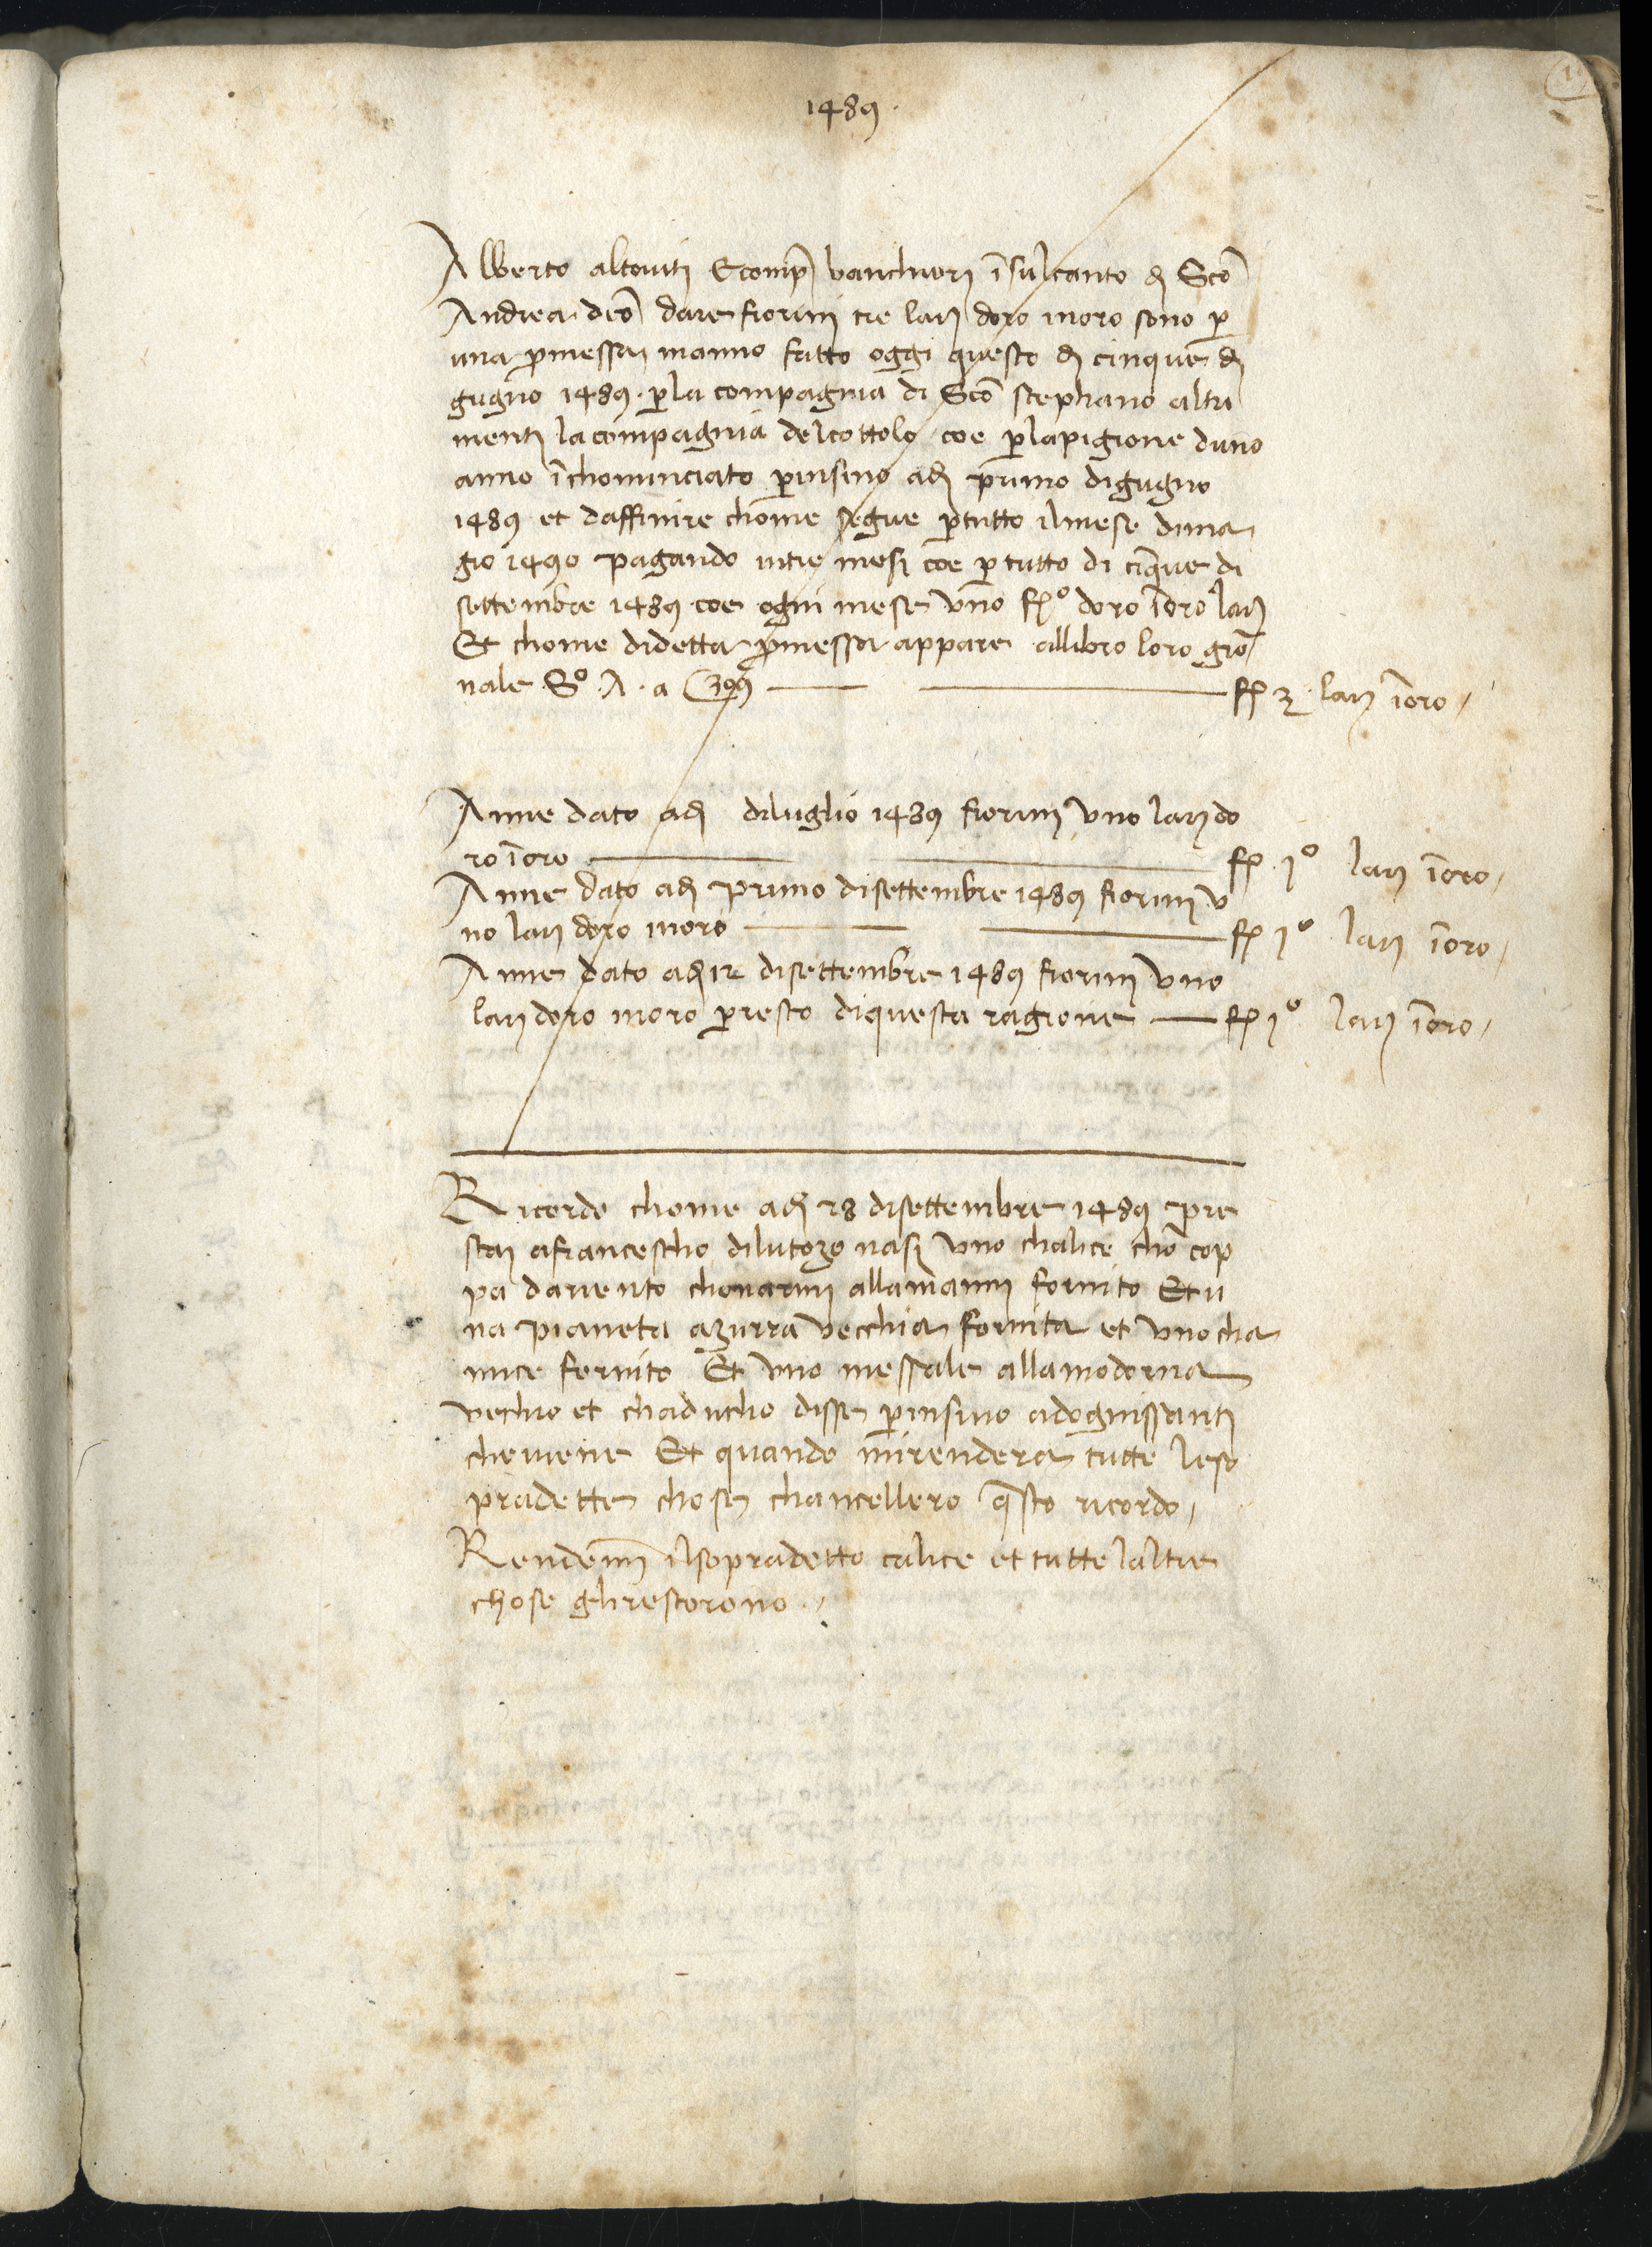 1489
Alberto altoviti & comp̄ banchieri ī sul canto di Sc̄o
Andrea deō dare fiorini tre larj doro inoro sono p̄
una p̄messa manno fatto oggi questo dj cinque dj
gugno 1489. p̄la compagnia di Sc̄o stephano altri
mentj la compagnia del cottolo coe p̄lapigione duno
anno īchominciato p̄insino adj primo digugno
1489 et daffinire chome segue p̄tutto ilmese dima
gio 1490 pagando intre mesj coe p̄ tutto di cīque di
settembre 1489 coe ogni mese uno fj° doro īoro larj
Et chome didetta p̄messa appare allibro loro gior
nale Sº. A. a c 399 fj 3 larj īoro
Anne dato adj diluglio 1489 fiorinj uno larj do
ro īoro fj 1º larj īoro
Anne dato adj primo disettembre 1489 fiorinj u
no larj doro inoro fj 1º larj īoro
Anne dato adj 12 disettembre 1489 fiorinj uno
larj doro inoro p̄resto diquesta ragione fj 1º larj īoro
Ricordo chome adj 28 disettembre 1489 pre
staj afrancescho dilutozo nasj uno chalice chō cop
pa dariento chonarmj allamannj fornito Et u
na pianeta azurra vecchia fornita et uno cha
mice fornito Et uno messale allamoderna
vechio et chaducho disse p̄insino adognissantj
cheviene Et quando mirendera tutte leso
pradette chose chancellero q̄sto ricordo
Rendemj ilsopradetto calice et tutte laltre
chose glirestorono